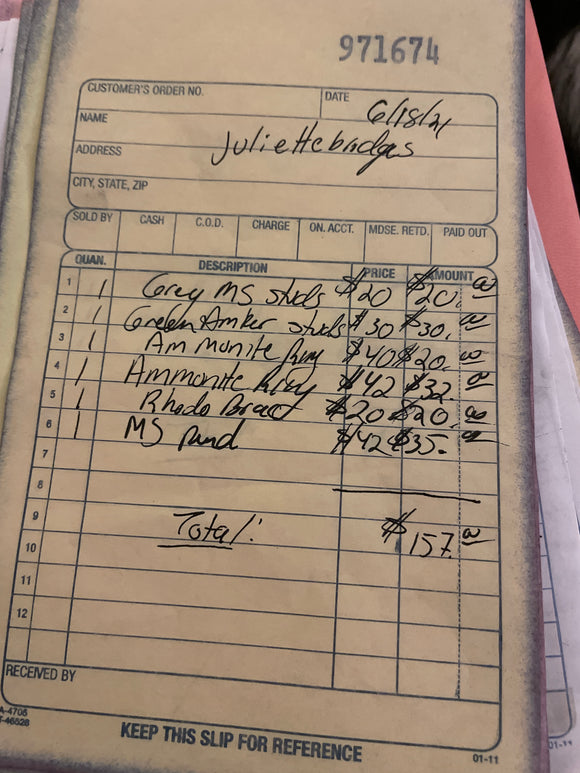 971674
CUSTOMER'S ORDER NO. DATE 6/18/21
NAME Juliette bridges
ADDRESS
CITY, STATE, ZIP
SOLD BY CASH C.O.D. CHARGE ON. ACCT. MDSE. RETD. PAID OUT
QUAN. DESCRIPTION PRICE AMOUNT
1 1 Grey MS studs $20 $20.00
2 1 Green Amber studs $30 $30.00
3 1 Ammonite Ring $40 $20.00
4 1 Ammonite Ring $42 $32.00
5 1 Rhodo Brace $20 $20.00
6 1 MS $42 $35.00
7
8
9 Total: $157.00
10
11
12
RECEIVED BY
A-4705
T-46528
KEEP THIS SLIP FOR REFERENCE
01-11
01-11